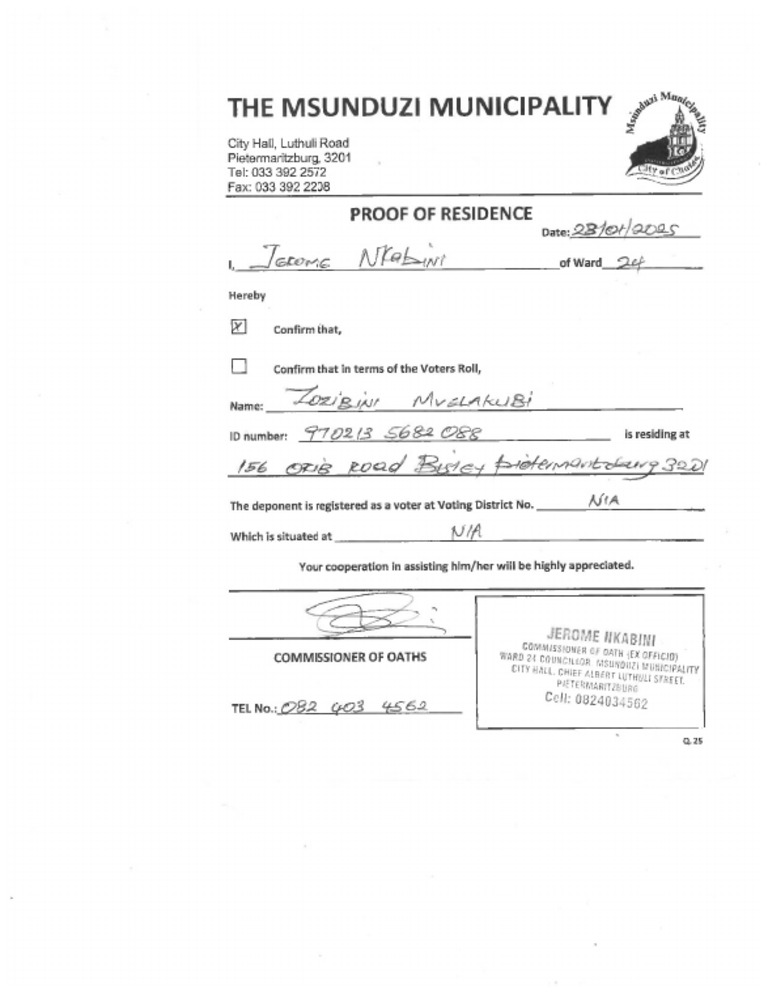 THE MSUNDUZI MUNICIPALITY
Msunduzi Municipality
City of Choice
City Hall, Luthuli Road
Pietermaritzburg, 3201
Tel: 033 392 2572
Fax: 033 392 2208
PROOF OF RESIDENCE
Date: 28/01/2025
I, Jerome Nkabini of Ward 24
Hereby
X Confirm that,
Confirm that in terms of the Voters Roll,
Name: Zozibini Mvelakubi
ID number: 970213 5682 088 is residing at
156 ORIB ROAD Bisley pietermaritzburg 3201
The deponent is registered as a voter at Voting District No. N/A
Which is situated at N/A
Your cooperation in assisting him/her will be highly appreciated.
COMMISSIONER OF OATHS
TEL No.: 082 403 4562
JEROME NKABINI
COMMISSIONER OF OATH (EX OFFICIO)
WARD 24 COUNCILLOR MSUNDUZI MUNICIPALITY
CITY HALL, CHIEF ALBERT LUTHULI STREET,
PIETERMARITZBURG
Cell: 0824034562
Q.25